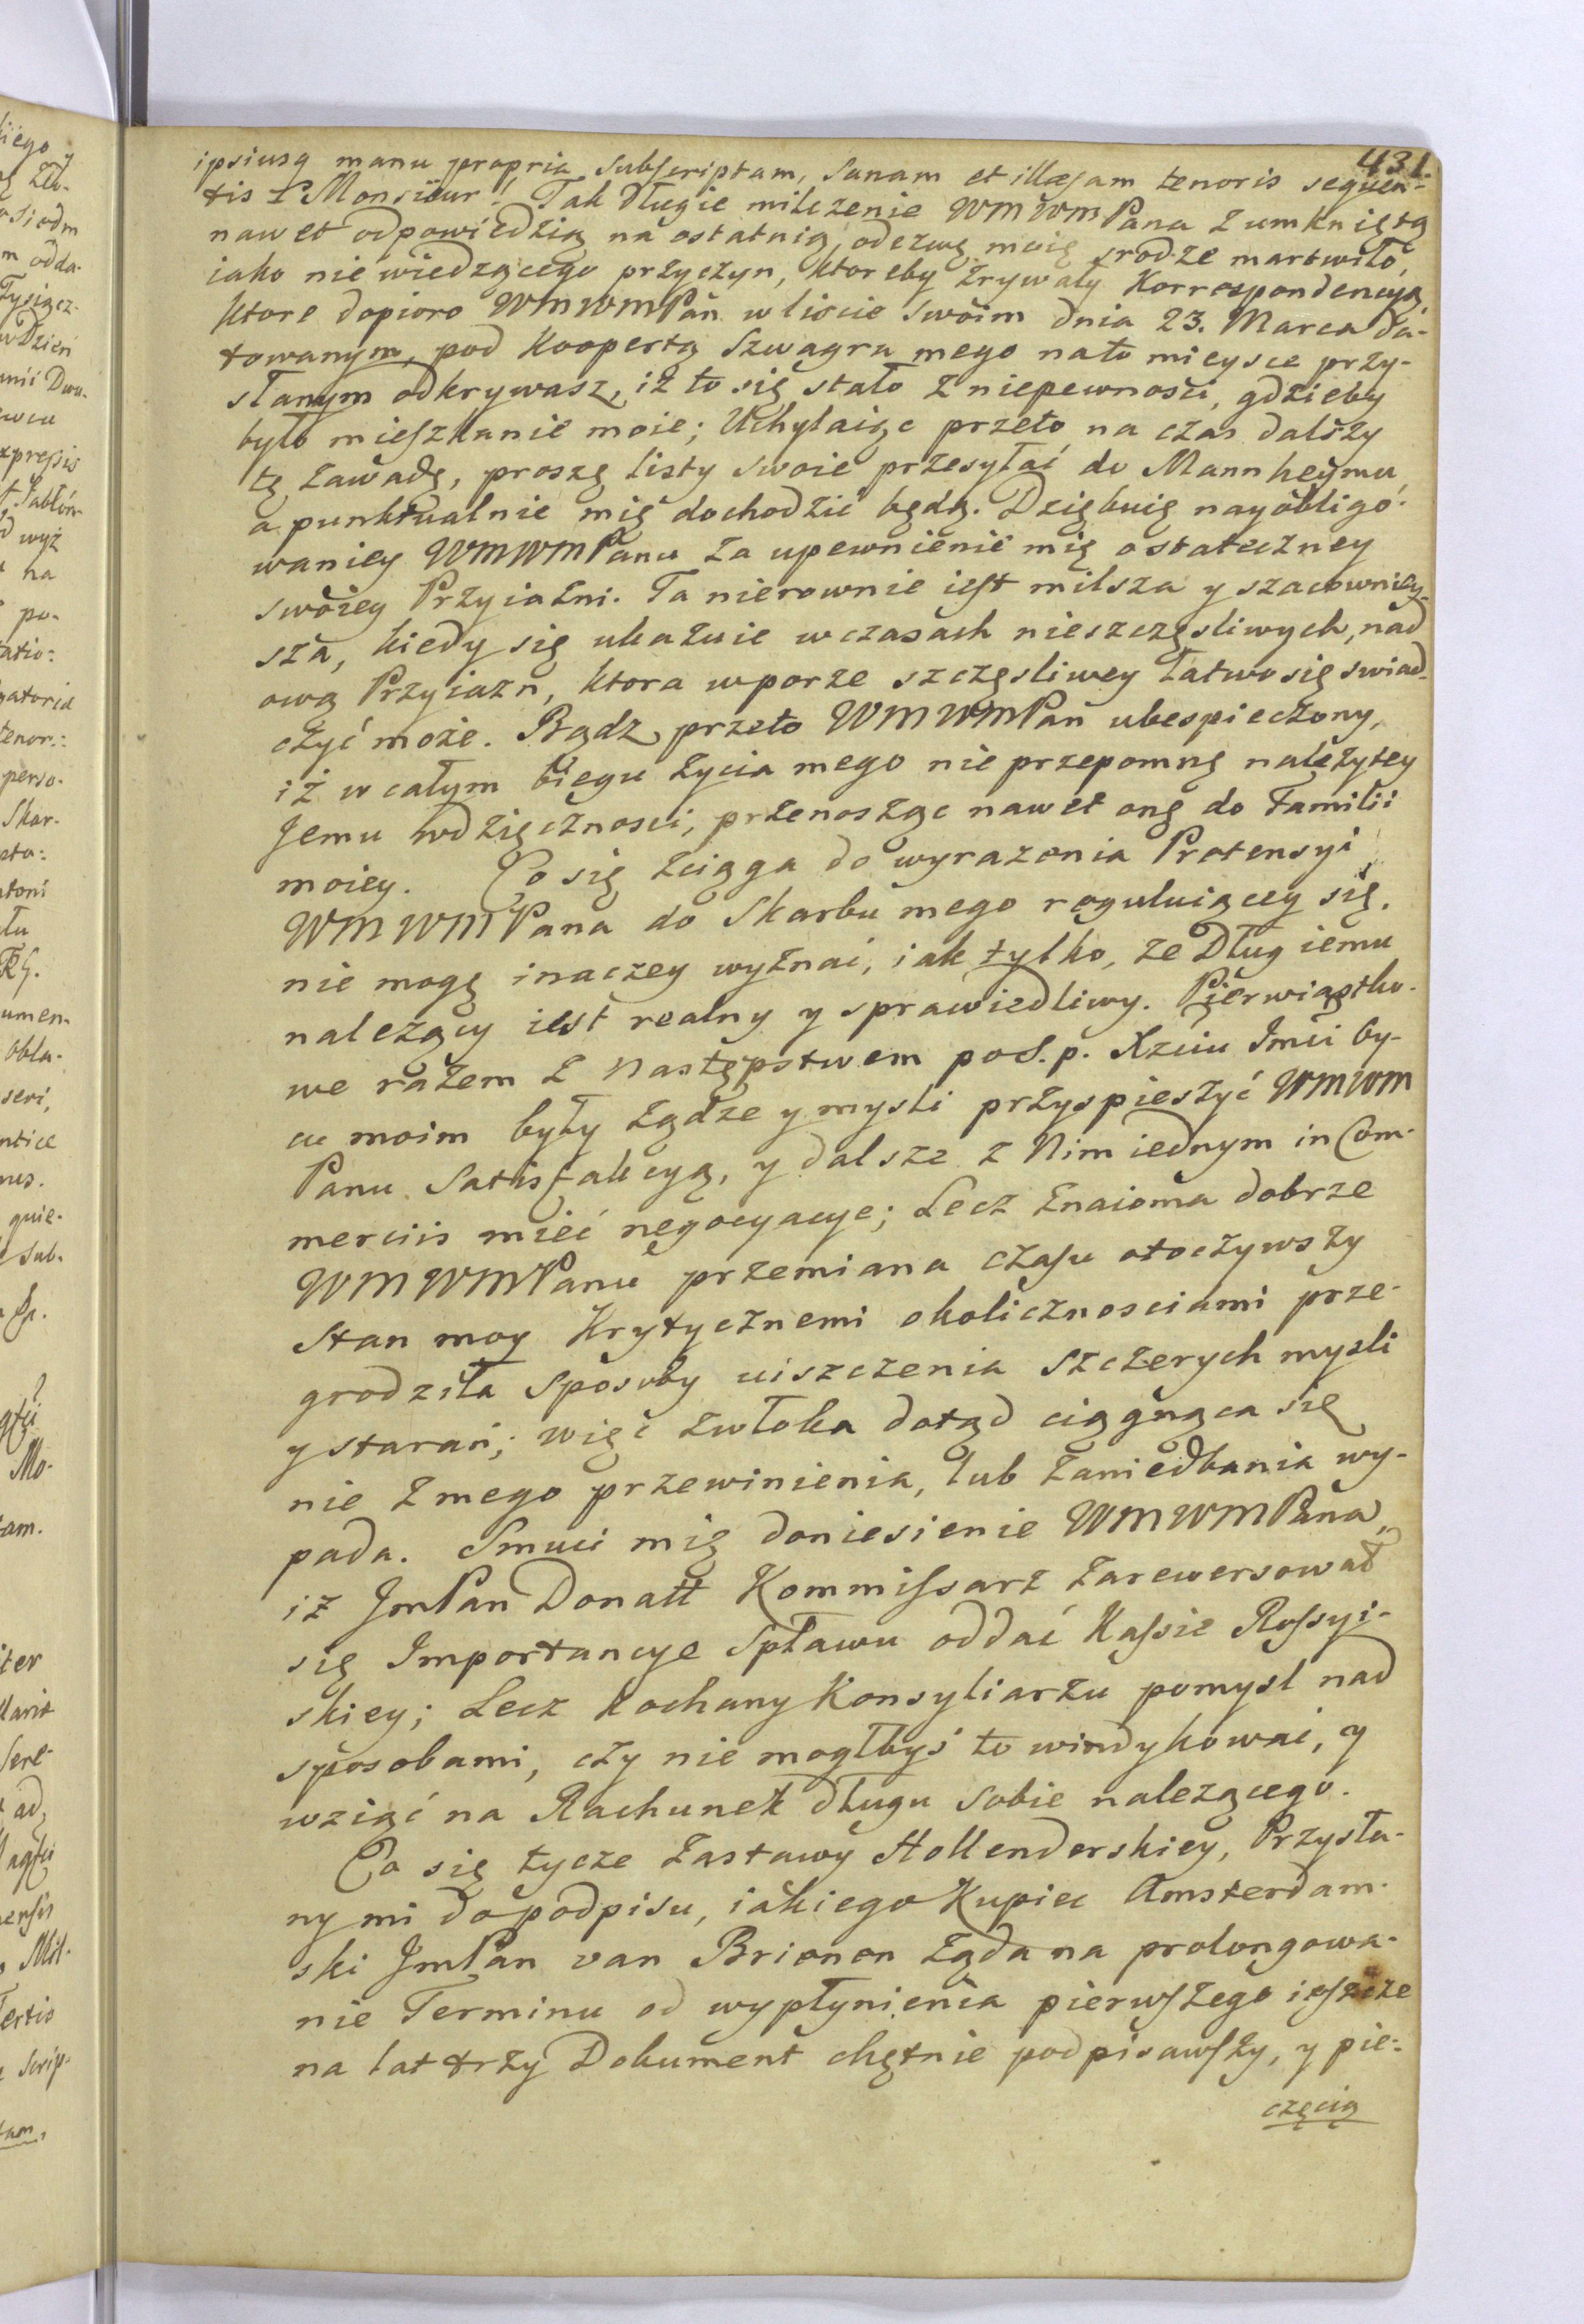 431.
ipsiusq manu propria subscriptam, sanam et illæsam tenoris sequen-
tis Monsieur! Tak długie milczenie WMWMPana z umkniętą
nawet odpowiedzią na ostatnią odezwę moię srodze martwiło,
iako niewiedzącego przyczyn, ktoreby zrywały Korrespondencyą,
ktore dopioro WMWMPan w liscie swoim dnia 23. Marca da-
towanym, pod Koopertą Szwagra mego nato mieysce przy-
słanym odkrywasz, iż to się stało z niepewnosci, gdzieby
było mieszkanie moie; Uchylaiąc przeto na czas dalszy
tę zawadę, proszę listy swoie przesyłać do Mannheymu,
a punktualnie mię dochodzić będą. Dziękuię nayobligo-
waniey WMWMPanu za upewnienie mię ostateczney
swoiey Przyiazni. Ta nierownie iest milsza y szacowniey-
sza, kiedy się ukazuie w czasach nieszczęsliwych, nad
ową Przyiazn, ktora w porze szczęsliwey łatwo się swiad-
czyć może. Bądz przeto WMWMPan ubespieczony,
iż w całym biegu życia mego nie przepomnę należytey
Jemu wdzięcznosci, przenosząc nawet onę do Familii
moiey. Co się zciąga do wyrazenia Pretensyi
WMWMPana do Skarbu mego reguluiącey się,
nie mogę inaczey wyznać, iak tylko, ze Dług iemu
nalezący iest realny y sprawiedliwy. Pierwiastko-
we razem z Następstwem po S. p. Xzciu Jmci Oy-
cu moim były żądze y mysli przyspieszyć WMWM
Panu Satisfakcyą, y dalsze z Nim iednym in Com-
merciis mieć negocyacye; Lecz znaioma dobrze
WMWMPanu przemiana czasu otoczywszy
Stan moy Krytycznemi okolicznosciami prze-
grodziła sposoby uiszczenia szczerych mysli
y starań; więc zwłoka dotąd ciągnąca się
nie z mego przewinienia, lub zaniedbania wy-
pada. Smuci mię doniesienie WMWMPana,
iz JmPan Donatt Kommissarz zarewersował
się Importancye Spławu oddać Kassie Rossyi-
skiey; Lecz kochany Konsyliarzu pomysl nad
sposobami, czy nie mogłbyś to windykować, y
wziąć na Rachunek długu sobie nalezącego.
Co się tycze Zastawy Hollenderskiey, Przysła-
ny mi do podpisu, iakiego Kupiec Amsterdam-
ski JmPan van Brienen żąda na prolongowa-
nie Terminu od wypłynienia pierwszego ieszcze
na lat trzy Dokument chętnie podpisawszy, y pie-
częcią